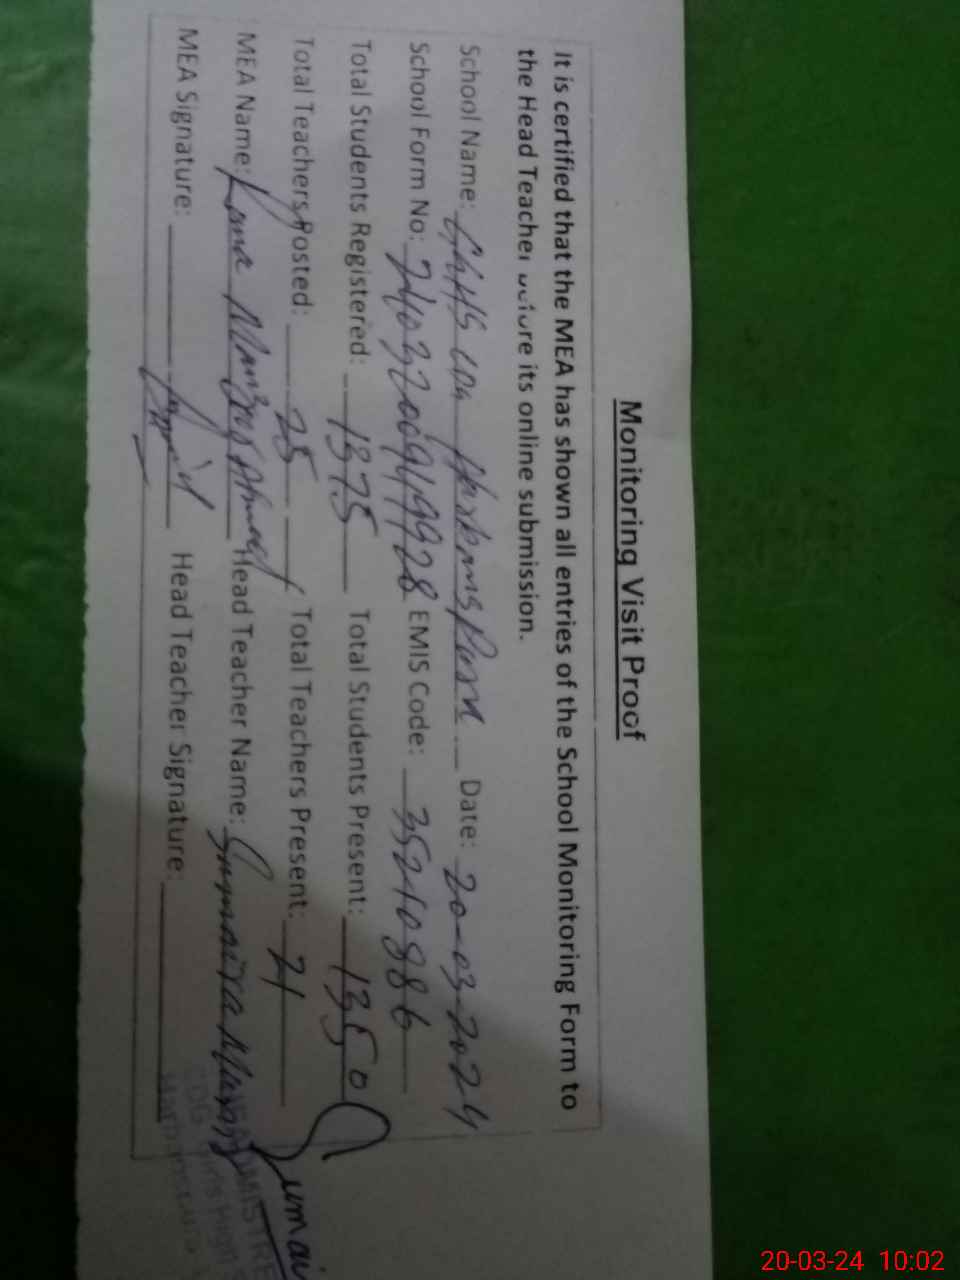 Monitoring Visit Proof
It is certified that the MEA has shown all entries of the School Monitoring Form to
the Head Teacher before its online submission.
School Name: Date: 20-03-2024
School Form No: EMIS Code: 35210886
Total Students Registered: 1375 Total Students Present: 1350
Total Teachers Posted: 25 Total Teachers Present: 21
MEA Name: Rana Ahmed Head Teacher Name: Sumaira
MEA Signature: Head Teacher Signature:
20-03-24 10:02